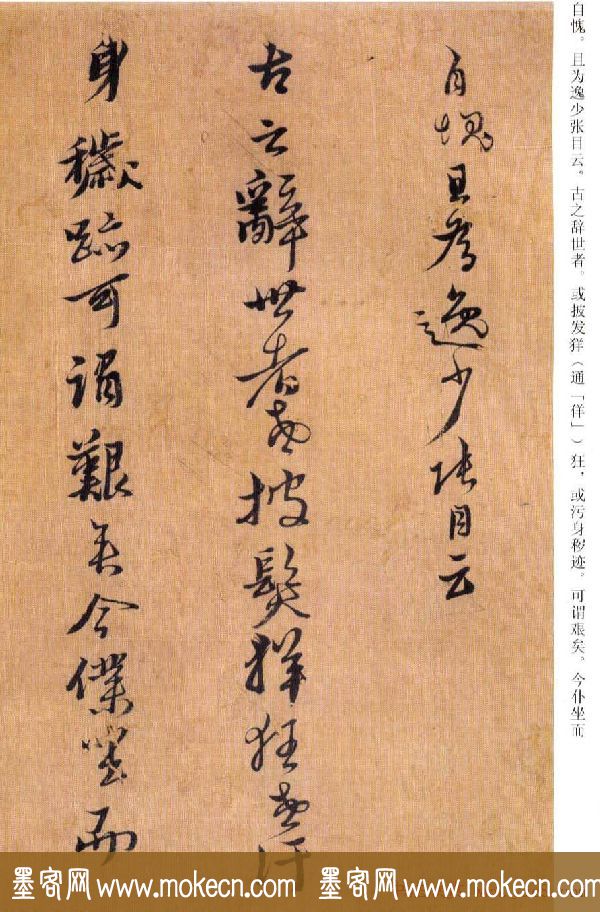 自愧。且为逸少张目云。古之辞世者。或披发犴（通「佯」）狂，或污身秽迹。可谓艰矣。今仆坐而
自愧且為逸少張目云
古之辭世者或披髮佯狂或汙
身穢跡可謂艱矣今僕坐而
墨客网 www.mokecn.com 墨客网 www.mokecn.com